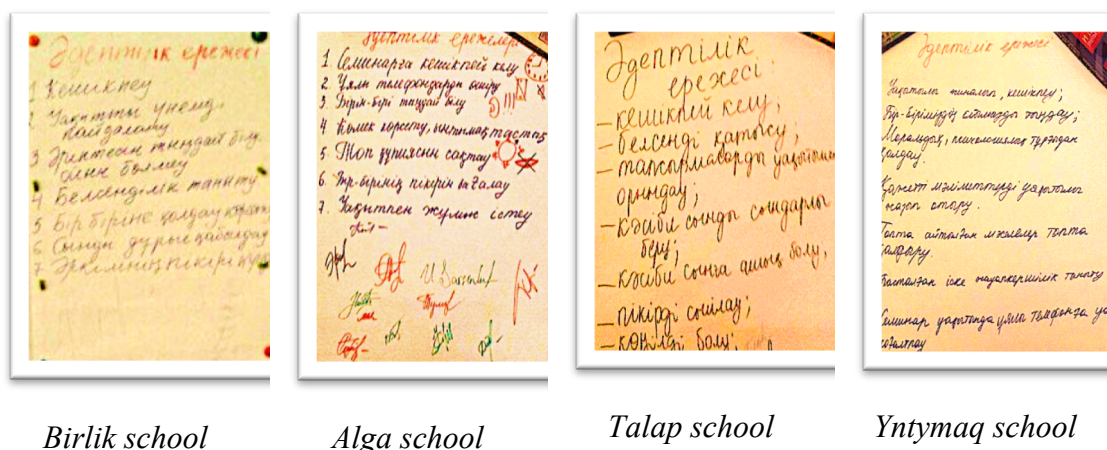 Әдептілік ережесі
1 Кешікпеу
2 Уақытты үнемді
пайдалану
3 Әріптесін тыңдай білу
оны бөлмеу
4 Белсенділік таныту
5 Бір біріне қолдау көрсету
6 Сынды дұрыс қабылдау
7 Әркімнің пікірін
Әдептілік ережелері
1. Семинарға кешікпей келу
2. Ұялы телефондарды өшіру
3. Бірін-бірі тыңдай білу
4 Көмек көрсету, ынтымақтастық
5. Топ құпиясын сақтау
6. Бір-бірінің пікірін бағалау
7. Уақытпен жұмыс істеу
Әдептілік
ережесі:
– кешікпей келу;
– белсенді қатысу;
– тапсырмаларды уақытылы
орындау;
– кәсіби сынды сындарлы
беру;
– кәсіби сынға ашық болу;
– пікірді сыйлау;
– көңілді болу;
Әдептілік ережесі
Уақытылы жиналып, кешікпеу;
Бір-бірімізді сыйласып тыңдау;
Моральдық, психологиялық тұрғыдан
қолдау.
Қажетті мәліметтерді уақытылы
жазып отыру.
Топта айтылған мәселелер топта
қалдыру.
Басталған іске жауапкершілік таныту
Семинар уақытында ұялы телефонға
Birlik school
Alga school
Talap school
Yntymaq school